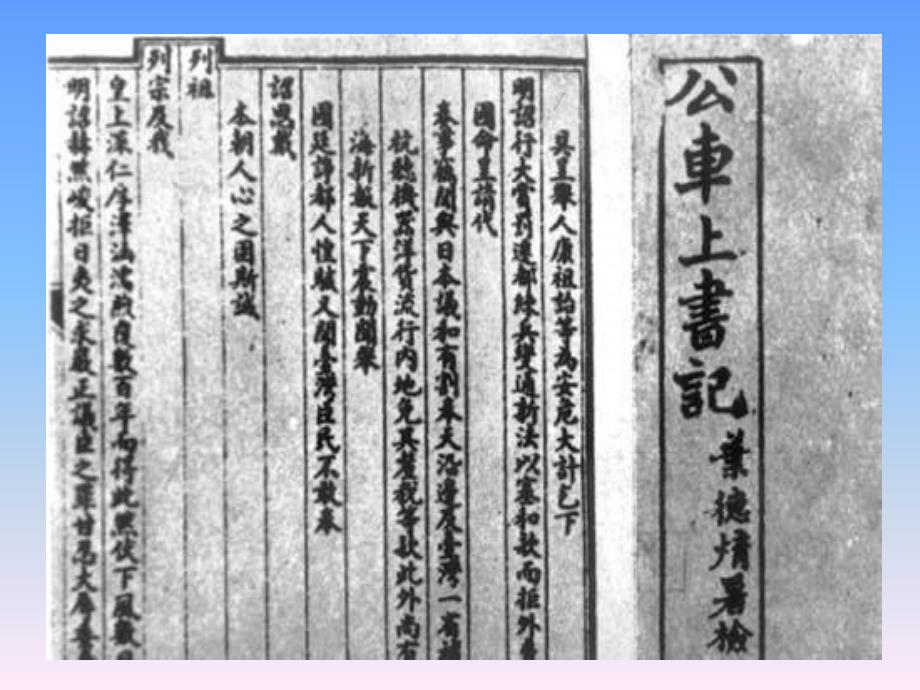 公車上書記
葉德煇署檢
具呈舉人康祖詒等為安危大計乞下
明詔行大賞罰遷都練兵變通新法以塞和款而拒外
國命呈請代
奏事竊聞與日本議和有割奉天沿邊及臺灣一省補
杭聽機器洋貨流行內地免其釐稅等款此外尚有
海新報天下震動聞舉
國廷諍都人惶駭又聞臺灣臣民不敢奉
詔思戴
本朝人心之固斯誠
列祖
列宗及我
皇上深仁厚澤涵濡煦覆數百年而得此然伏下風數
明詔赫然峻拒日夷之求嚴正議臣之罪甘忍大辱委